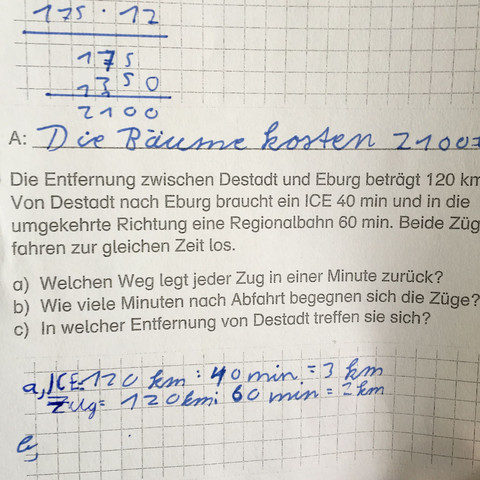 175 · 12
175
1350
2100
A: Die Bäume kosten 2100
Die Entfernung zwischen Destadt und Eburg beträgt 120 km
Von Destadt nach Eburg braucht ein ICE 40 min und in die
umgekehrte Richtung eine Regionalbahn 60 min. Beide Züg
fahren zur gleichen Zeit los.
a) Welchen Weg legt jeder Zug in einer Minute zurück?
b) Wie viele Minuten nach Abfahrt begegnen sich die Züge?
c) In welcher Entfernung von Destadt treffen sie sich?
a, ICE=120 km : 40 min. = 3 km
Zug= 120km: 60 min = 2 km